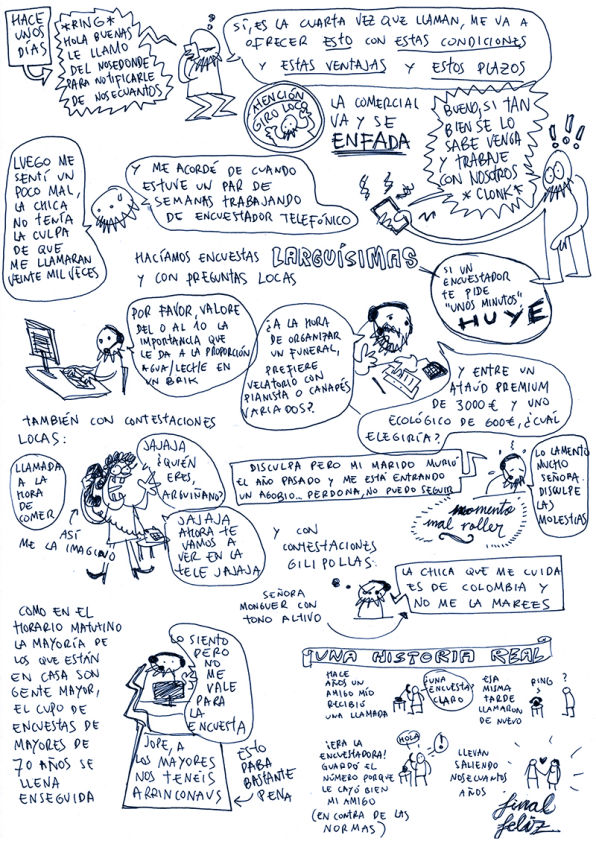 HACE
UNOS
DÍAS
*RING*
HOLA BUENAS
LE LLAMO
DEL NOSEDONDE
PARA NOTIFICARLE
DE NOSECUANTOS
SÍ, ES LA CUARTA VEZ QUE LLAMAN, ME VA A
OFRECER ESTO CON ESTAS CONDICIONES
Y ESTAS VENTAJAS Y ESTOS PLAZOS
ATENCIÓN
GIRO LOCO
LA COMERCIAL
VA Y SE
ENFADA
BUENO, SI TAN
BIEN SE LO
SABE VENGA
Y TRABAJE
CON NOSOTROS
*CLONK*
!!!
LUEGO ME
SENTÍ UN
POCO MAL,
LA CHICA
NO TENÍA
LA CULPA
DE QUE
ME LLAMARAN
VEINTE MIL VECES
Y ME ACORDÉ DE CUANDO
ESTUVE UN PAR DE
SEMANAS TRABAJANDO
DE ENCUESTADOR TELEFÓNICO
HACÍAMOS ENCUESTAS LARGUÍSIMAS
Y CON PREGUNTAS LOCAS
SI UN
ENCUESTADOR
TE PIDE
"UNOS MINUTOS"
HUYE
POR FAVOR, VALORE
DEL 0 AL 10 LA
IMPORTANCIA QUE
LE DA A LA PROPORCIÓN
AGUA/LECHE EN
UN BRIK
¿A LA HORA
DE ORGANIZAR
UN FUNERAL,
PREFIERE
VELATORIO CON
PIANISTA O CANAPÉS
VARIADOS?
Y ENTRE UN
ATAÚD PREMIUM
DE 3000€ Y UNO
ECOLÓGICO DE 600€, ¿CUÁL
ELEGIRÍA?
TAMBIÉN CON CONTESTACIONES
LOCAS:
LLAMADA
A LA
HORA
DE
COMER
ASÍ
ME LA IMAGINO
JAJAJA
¿QUIÉN
ERES,
ARGUIÑANO?
JAJAJA
AHORA TE
VAMOS A
VER EN LA
TELE JAJAJA
DISCULPA PERO MI MARIDO MURIÓ
EL AÑO PASADO Y ME ESTÁ ENTRANDO
UN AGOBIO... PERDONA, NO PUEDO SEGUIR
LO LAMENTO
MUCHO
SEÑORA.
DISCULPE
LAS
MOLESTIAS
momento
mal roller
Y CON
CONTESTACIONES
GILIPOLLAS:
SEÑORA
MONGUER CON
TONO ALTIVO
LA CHICA QUE ME CUIDA
ES DE COLOMBIA Y
NO ME LA MAREES
COMO EN EL
HORARIO MATUTINO
LA MAYORÍA DE
LOS QUE ESTÁN
EN CASA SON
GENTE MAYOR,
EL CUPO DE
ENCUESTAS DE
MAYORES DE
70 AÑOS SE
LLENA
ENSEGUIDA
LO SIENTO
PERO
NO
ME
VALE
PARA
LA
ENCUESTA
JOPE, A
LOS MAYORES
NOS TENÉIS
ARRINCONAUS
ESTO
DABA
BASTANTE
PENA
¡UNA HISTORIA REAL!
HACE
AÑOS UN
AMIGO MÍO
RECIBIÓ
UNA LLAMADA
¿UNA
ENCUESTA?
CLARO
ESA
MISMA
TARDE
LLAMARON
DE NUEVO
RING
¡ERA LA
ENCUESTADORA!
GUARDÓ EL
NÚMERO PORQUE
LE CAYÓ BIEN
MI AMIGO
(EN CONTRA DE LAS
NORMAS)
HOLA
!
LLEVAN
SALIENDO
NOSECUANTOS
AÑOS
final
feliz